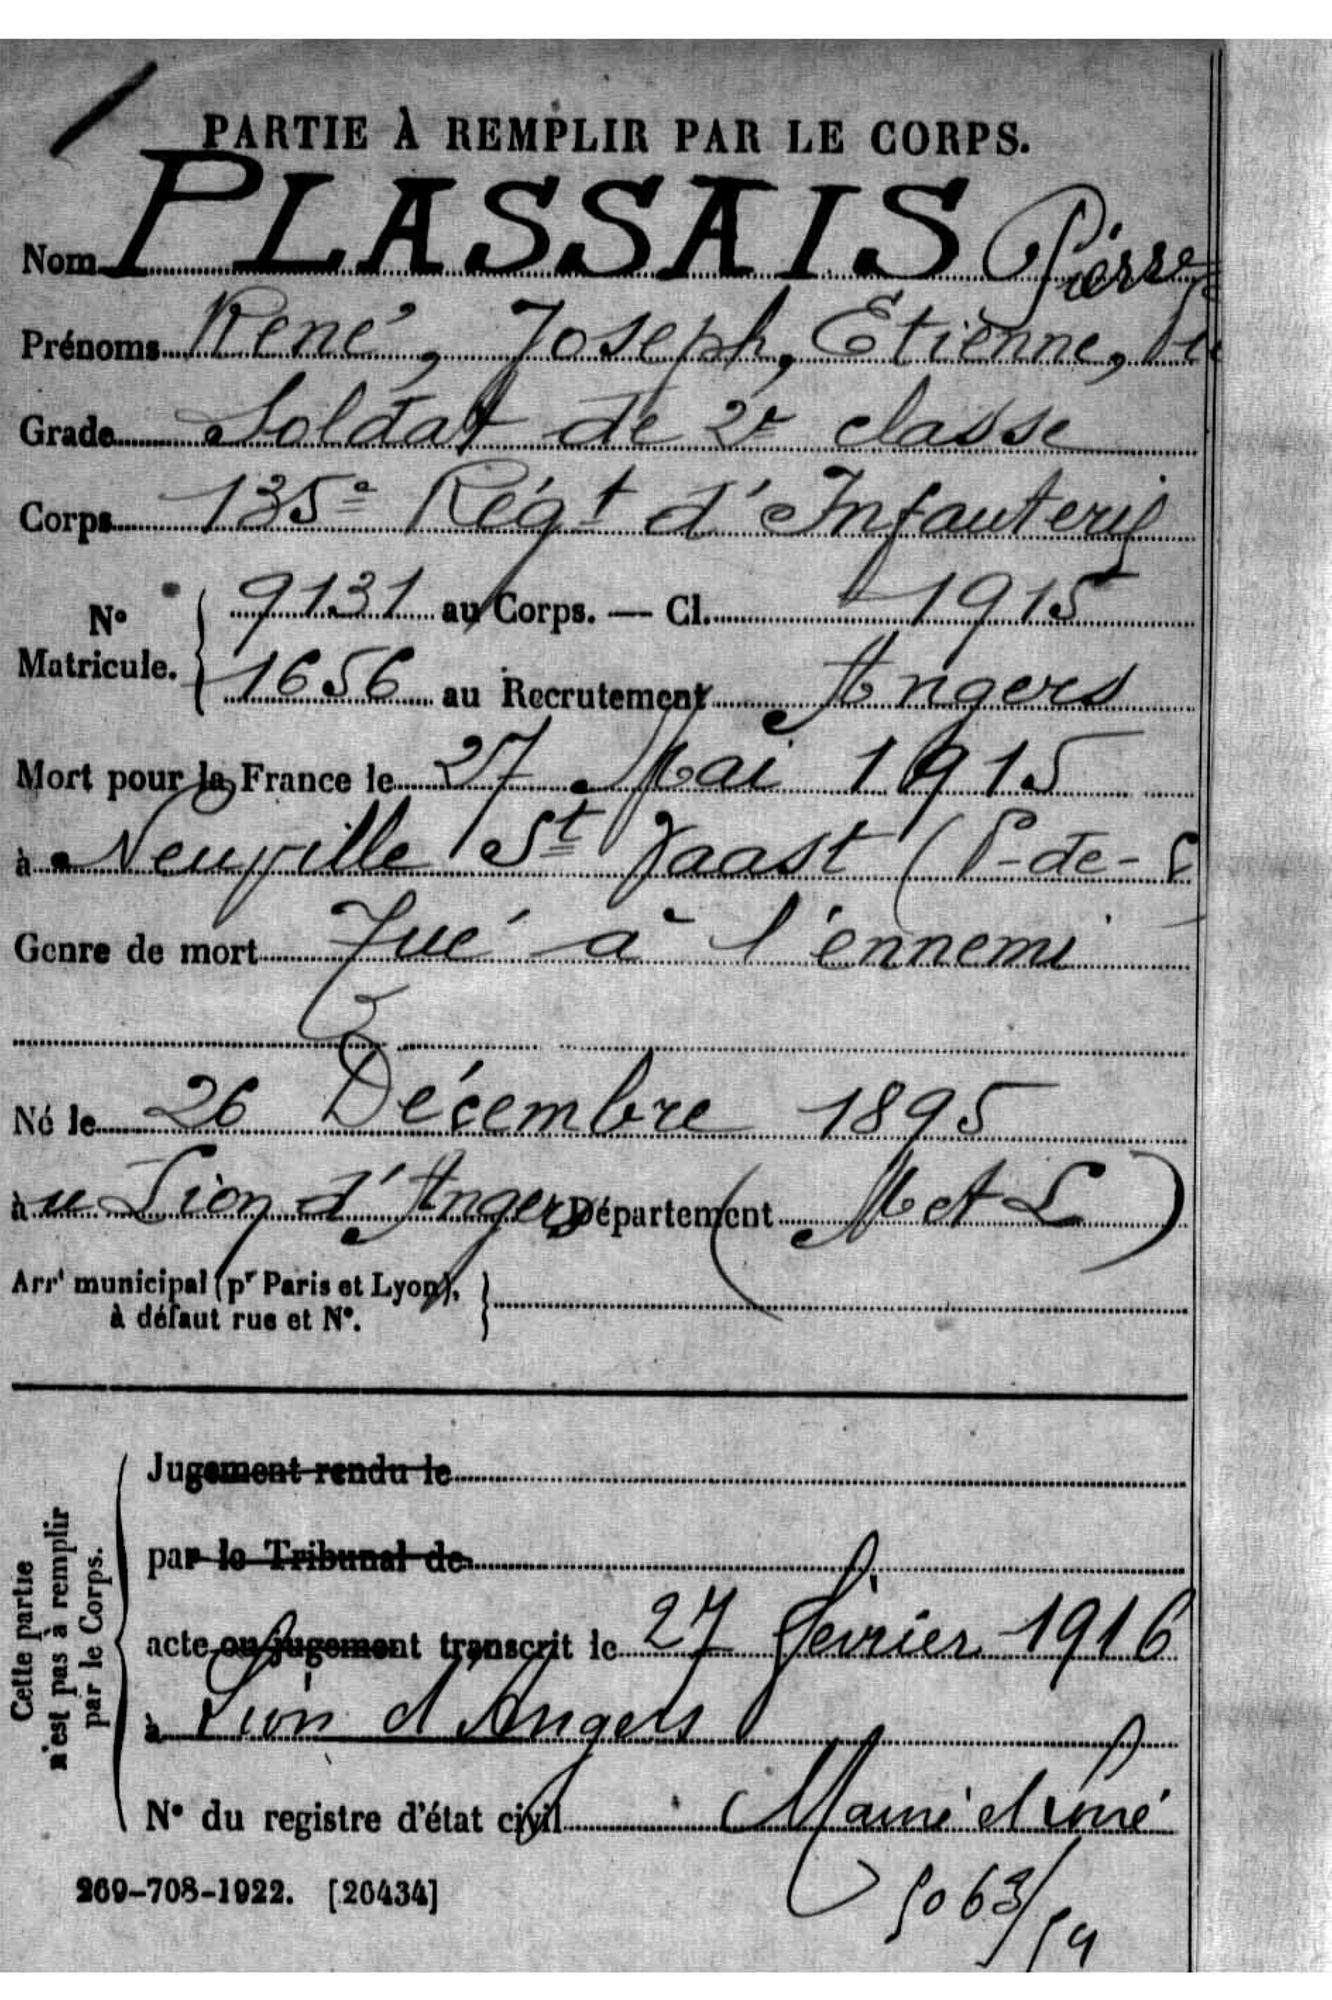 PARTIE À REMPLIR PAR LE CORPS.
Nom PLASSAIS Pierre
Prénoms René, Joseph, Etienne,
Grade Soldat de 2e classe
Corps 135e Régt d'Infanterie
No Matricule. { 9131 au Corps. — Cl. 1915
1656 au Recrutement Angers
Mort pour la France le 27 Mai 1915
à Neuville St Vaast (P-de-C
Genre de mort Tué à l'ennemi
Né le 26 Décembre 1895
au Lion d'Angers Département (M et L)
Arrt municipal (pr Paris et Lyon), }
à défaut rue et No.
Cette partie
n'est pas à remplir
par le Corps.
Jugement rendu le
par le Tribunal de
acte ou jugement transcrit le 27 février 1916
à Lion d'Angers
No du registre d'état civil Maine et Loire
269-708-1922. [26434]
5063/54